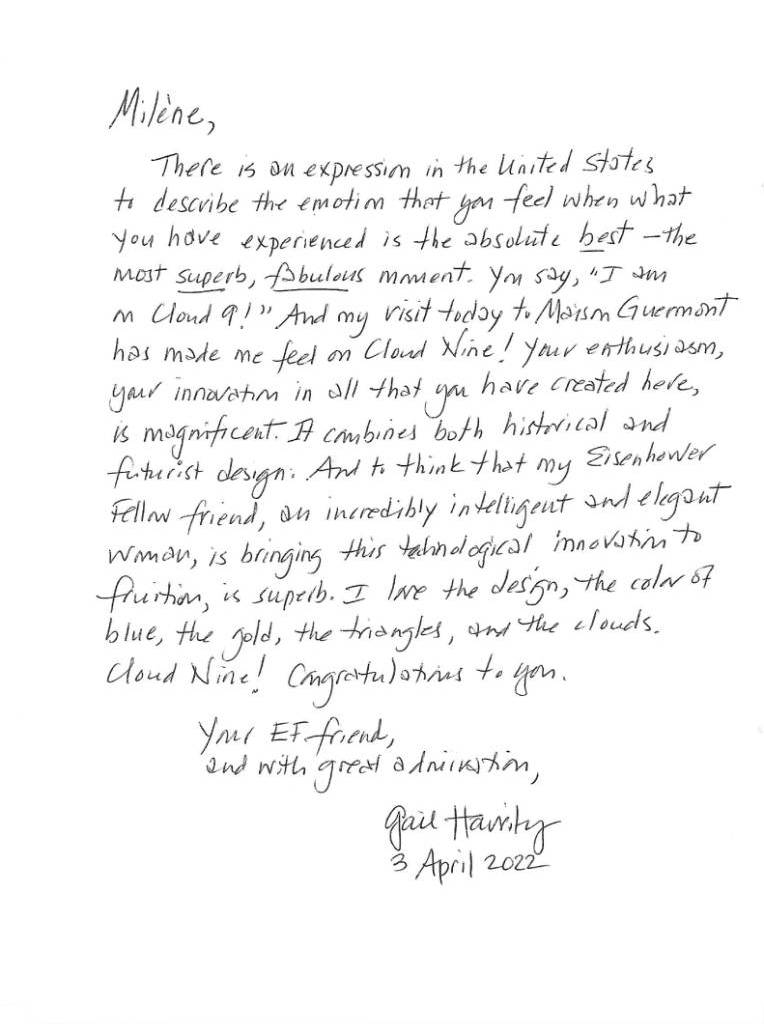 Milène,
There is an expression in the United States
to describe the emotion that you feel when what
you have experienced is the absolute best – the
most superb, fabulous moment. You say, "I am
on Cloud 9!" And my visit today to Maison Guermont
has made me feel on Cloud Nine! Your enthusiasm,
your innovation in all that you have created here,
is magnificent. It combines both historical and
futurist design. And to think that my Eisenhower
Fellow friend, an incredibly intelligent and elegant
woman, is bringing this technological innovation to
fruition, is superb. I love the design, the color of
blue, the gold, the triangles, and the clouds.
Cloud Nine! Congratulations to you.
Your EF friend,
and with great admiration,
Gail Harrity
3 April 2022